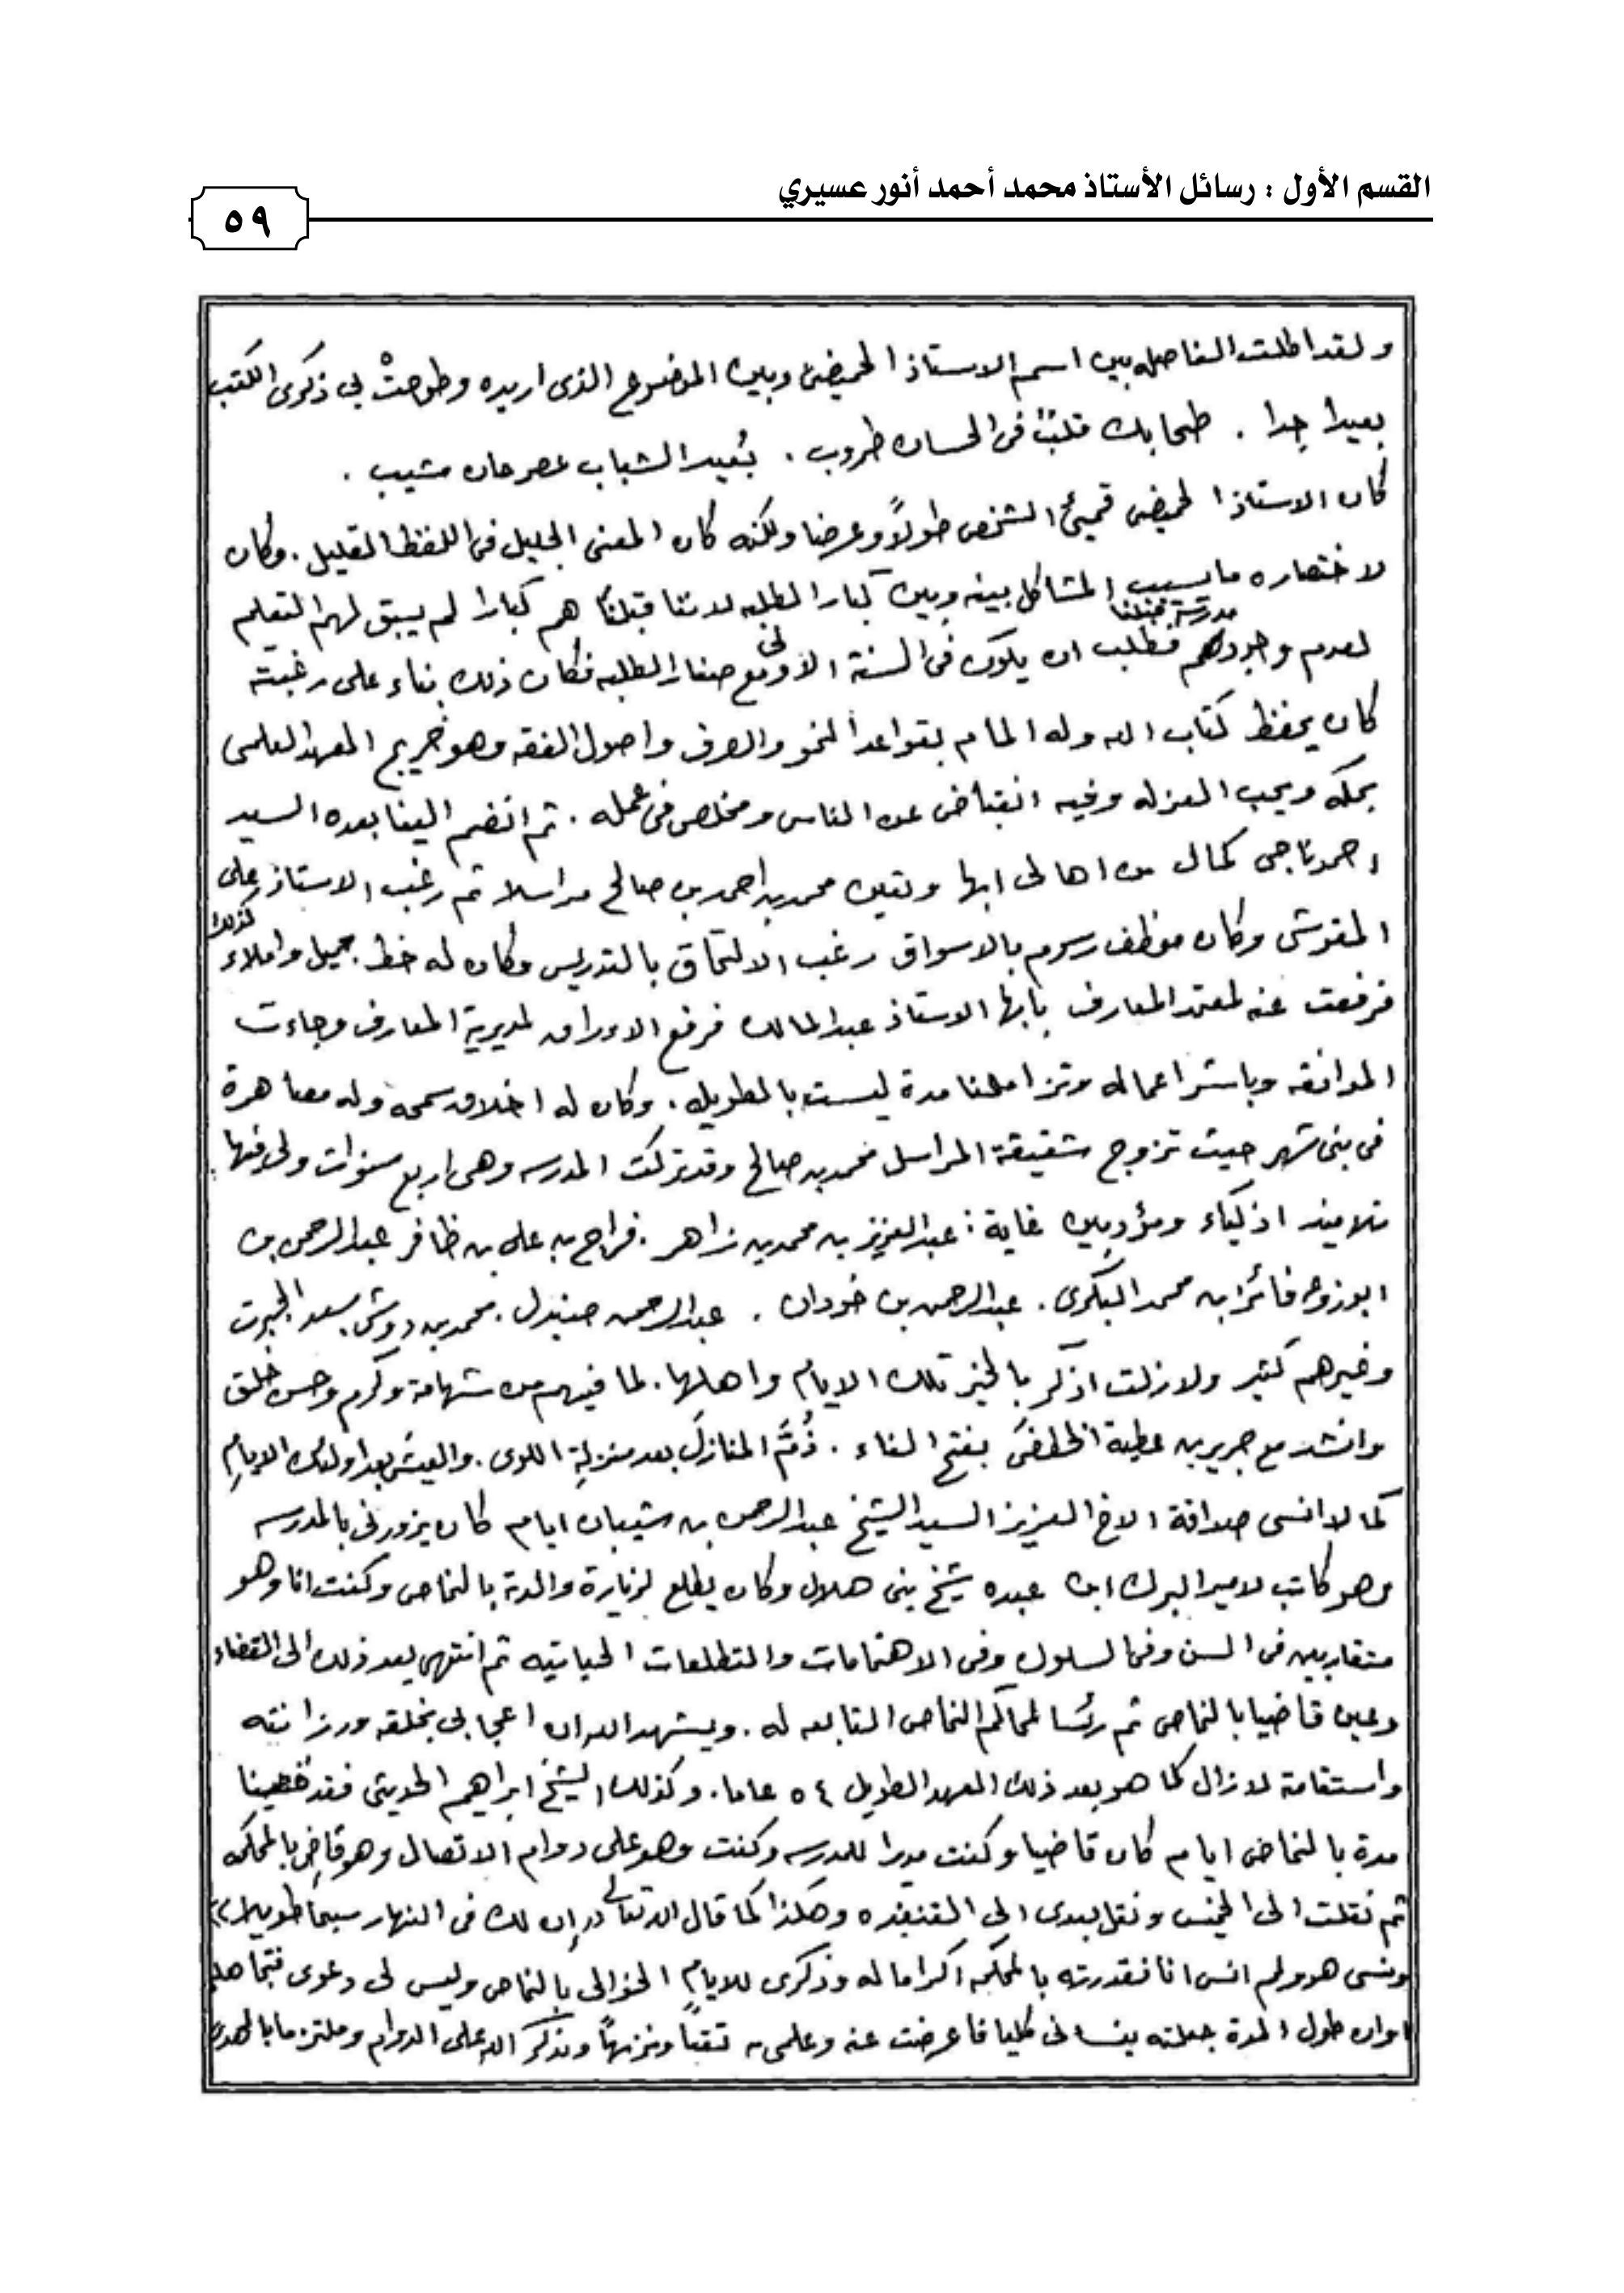 القسم الأول : رسائل الأستاذ محمد أحمد أنور عسيري
٥٩
ولقد اطلت الفاصله بين اسم الاستاذ الحميضى وبين الموضوع الذى اريده وطوحتْ بى ذكرى الكتب
بعيدا جدا . طحا بك قلبٌ فى الحسان طروب . بُعيد الشباب عصر حان مشيب .
كان الاستاذ الحميضى قميئ الشخص طولاً وعرضا ولكنه كان المعنى الجليل فى اللفظ القليل . وكان
لاختصاره ما يسبب المشاكل بينه وبين كبار الطلبه لاننا قبلنا هم كبارا لم يسبق لهم التعليم
لعدم وجود مدرسة قبلنا فطلب ان يكون فى السنة الاولى مع صغار الطلبه فكان ذلك بناء على رغبته
كان يحفظ كتاب الله وله المام بقواعد النحو والصرف واصول الفقه وهو خريج المعهد العلمى
بمكه ويحب العزله وفيه انقباض عن الناس ومخلص فى عمله . ثم انضم الينا بعده السيد
احمد ناجى كمال من اهالى ابها وتعين محمد بن احمد بن صالح مراسلا ثم رغب الاستاذ على
المقوشى وكان موظف رسوم بالاسواق رغب الالتحاق بالتدريس وكان له خط جميل واملاء كذلك
فرفعت عنه لمعتمد المعارف بابها الاستاذ عبدالمالك فرفع الاوراق لمديرية المعارف وجاءت
الموافقه وباشر اعماله وتزاملنا مدة ليست بالطويله . وكان له اخلاق سمحه وله مصاهرة
فى بنى شهر حيث تزوج شقيقة المراسل محمد بن صالح وقد تركت المدرسه وهى اربع سنوات ولى فيها
تلاميذ اذكياء ومؤدبين غاية : عبدالعزيز بن محمد بن زاهر . فراج بن على بن ظافر عبدالرحمن بن
ابوزوعه فائز ابن محمد البكرى . عبدالرحمن بن خودان . عبدالرحمن صنيدل . محمد بن دوش سعد
وغيرهم كثير ولازلت اذكر بالخير تلك الايام واهلها . لما فيهم من شهامة وكرم وحسن خلق
وانشد مع جرير بن عطية الخطفىَ بفتح الفاء . ذُمَّ المنازلَ بعد منزلةِ اللوى . والعيشَ بعد اولئك الايامِ
كما لا انسى صداقة الاخ العزيز السيد الشيخ عبدالرحمن بن شيبان ايام كان يزورنى بالمدرسه
وهو كاتب لامير البرك ابن عبده شيخ بنى هلال وكان يطلع لزيارة والدته بالنماص وكنت انا وهو
متقاربين فى السن وفى السلوك وفى الاهتمامات والتطلعات الحياتيه ثم انتهى بعد ذلك الى القضاء
وعين قاضيا بالنماص ثم رئسا لمحاكم النماص التابعه له . ويشهد الله ان اعجابى بخلقه ورزانته
واستقامة لازال كما هو بعد ذلك العهد الطويل ٥٤ عاما . وكذلك الشيخ ابراهيم الحديثى فقد قضينا
مدة بالنماص ايام كان قاضيا وكنت مديرا للمدرسه وكنت وهو على دوام الاتصال وهو قاضٍ بالمحكمه
ثم نقلت الى الخميس ونقل بعدى الى القنفذه وهكذا كما قال الله تعالى (( إن لك فى النهار سبحا طويلا ))
ونسى هو ولم انس انا فقد زرته بالمحكمه اكراما له وذكرى للايامِ الخوالى بالنماص وليس لى دعوى فتجاهل
اوان طول المدة جعلته ينسانى كليا فاعرضت عنه وعلمى به تقياً ونزيهاً ويذكر الله على الدوام وملتزما